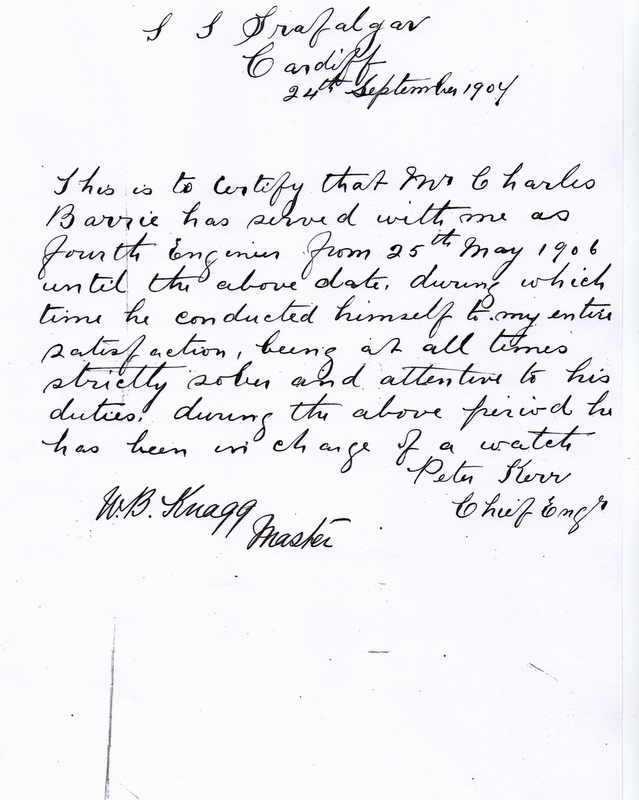 S S Trafalgar
Cardiff
24th September 1907
This is to Certify that Mr Charles
Barrie has served with me as
fourth Engineer from 25th May 1906
until the above date. during which
time he conducted himself to my entire
satisfaction, being at all times
strictly sober and attentive to his
duties. during the above period he
has been in charge of a watch
Peter Kerr
Chief Engr
W.B. Knagg
Master